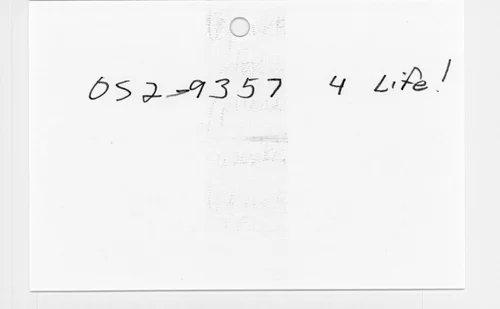 OS2-9357 4 Life!